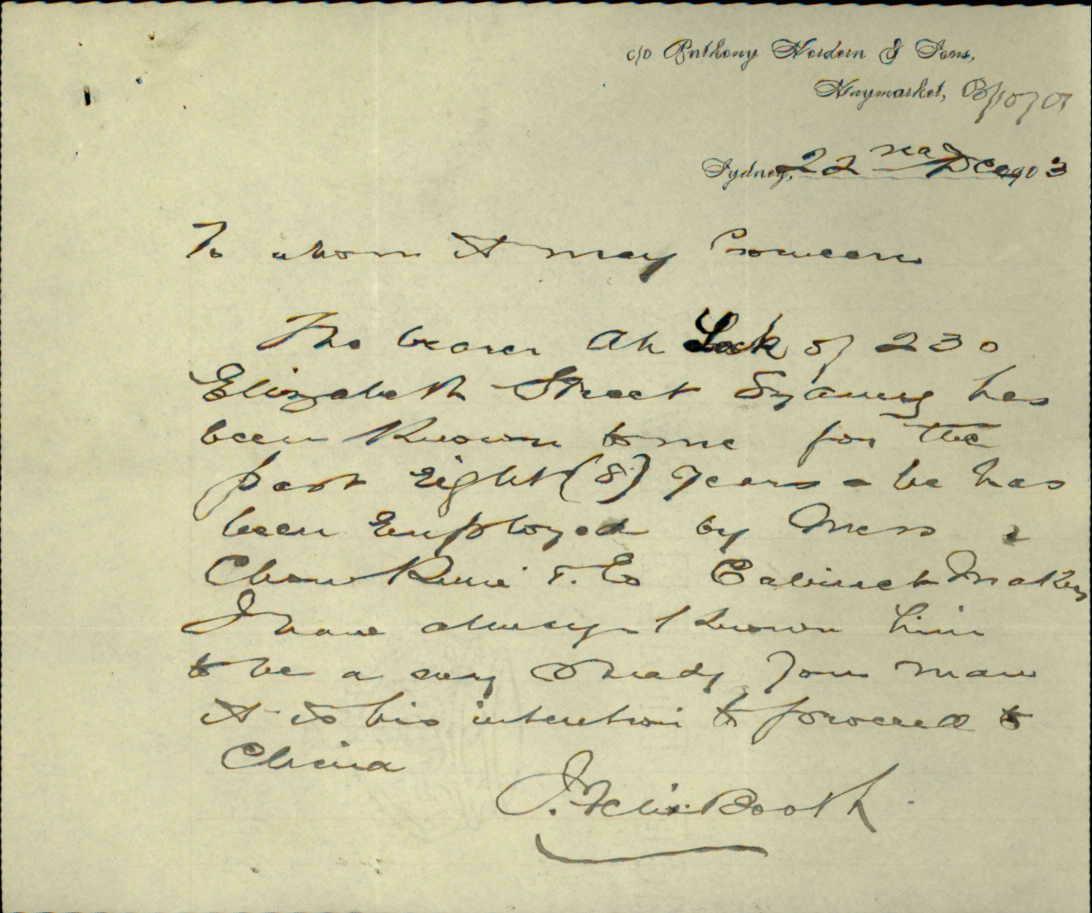 c/o Anthony Hordern & Sons,
Haymarket,
Sydney, 22nd Dec 1903
To whom it may Concern
The bearer Ah Lock of 230
Elizabeth Street Sydney has
been Known to me for the
past Eight (8) years - he has
been Employed by Mess
Cabinet Makers
I have always Known him
to be a very Steady man
it is his intention to proceed to
China
J. Felix Booth